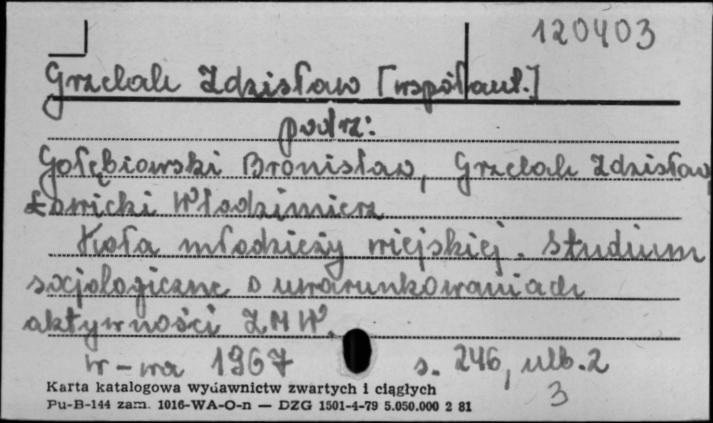 120403
Grzelak Zdzisław [współaut.]
podrz:
Gołębiowski Bronisław, Grzelak Zdzisław,
Ławicki Włodzimierz
Koła młodzieży wiejskiej. Studium
socjologiczne o uwarunkowaniach
aktywności ZMW.
W-wa 1967 s. 246, nlb. 2
3
Karta katalogowa wydawnictw zwartych i ciągłych
Pu-B-144 zam. 1016-WA-O-n — DZG 1501-4-79 5.050.000 2 81